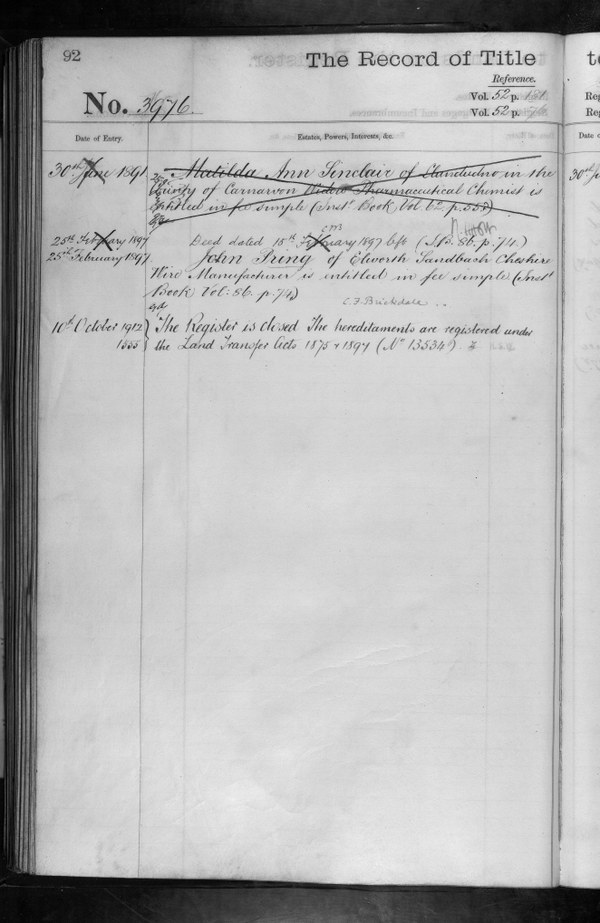 92
The Record of Title
Reference.
No. 3976.
Vol. 52 p. 181
Vol. 52 p.
Date of Entry.
Estates, Powers, Interests, &c.
30th June 1891 Matilda Ann Sinclair of Llandudno in the
County of Carnarvon Pharmaceutical Chemist is
entitled in fee simple (Inst Book Vol 62. p. 558)
25th February 1897 Deed dated 15th February 1897 left (I.B. 86. p. 74.)
25th February 1897 John Pring of Elworth Sandbach Cheshire
Wire Manufacturer is entitled in fee simple (Inst
Book Vol: 86. p. 74)
C. F. Brickdale
10th October 1912 The Register is closed The hereditaments are registered under
1555 the Land Transfer Acts 1875 & 1897 (No 13534)